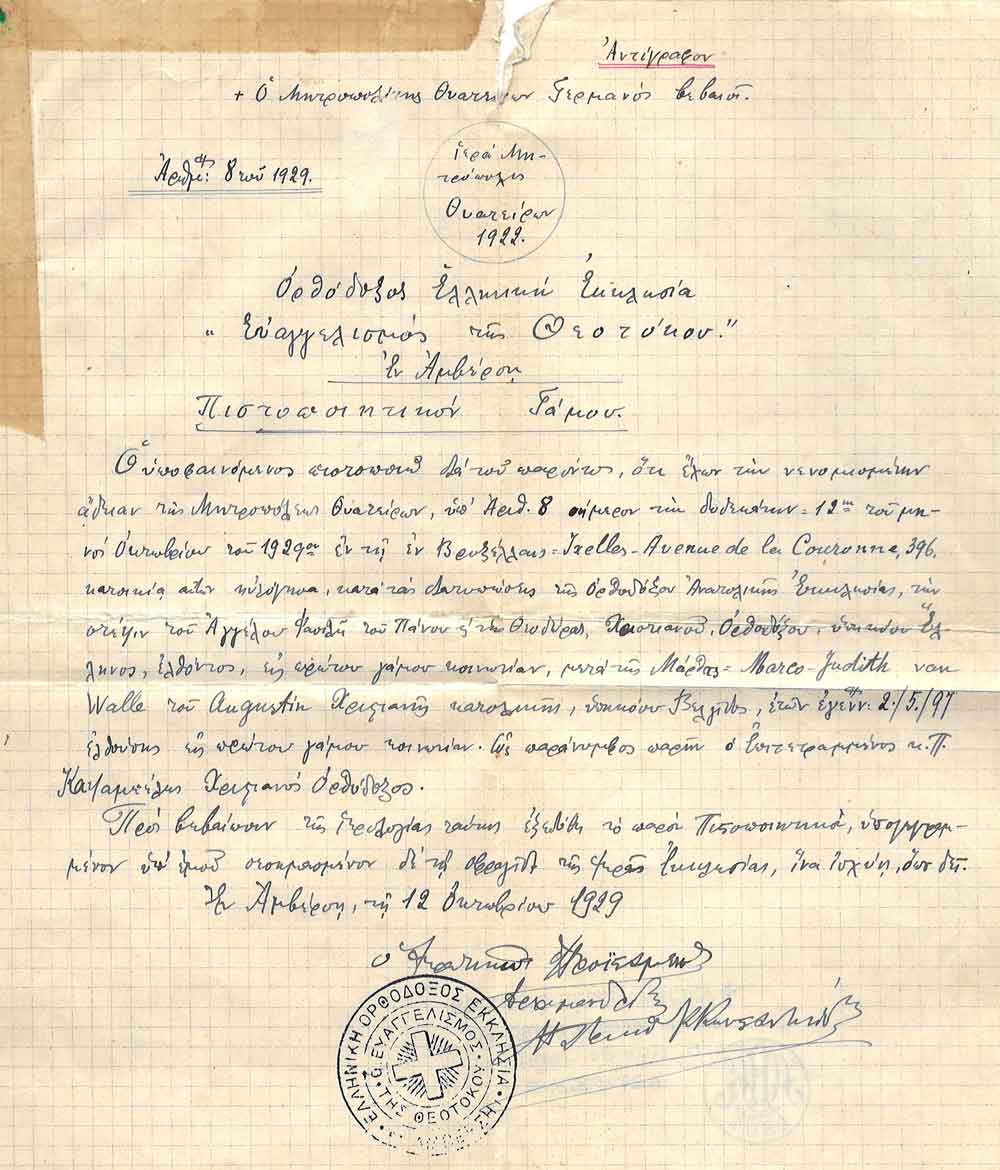 Ἀντίγραφον
+ Ὁ Μητροπολίτης Θυατείρων Γερμανὸς βεβαιοῖ.
Ἀριθμ: 8 τοῦ 1929.
Ἱερὰ Μη-
τρόπολις
Θυατείρων
1922.
Ὀρθόδοξος Ἑλληνικὴ Ἐκκλησία
"Εὐαγγελισμὸς τῆς Θεοτόκου."
Ἐν Ἀμβέρσῃ
Πιστοποιητικὸν Γάμου.
Ὁ ὑποφαινόμενος πιστοποιῶ διὰ τοῦ παρόντος, ὅτι ἔχων τὴν νενομισμένην
ἄδειαν τῆς Μητροπόλεως Θυατείρων, ὑπ' Ἀριθ. 8 σήμερον τὴν δωδεκάτην = 12ην τοῦ μη-
νὸς Ὀκτωβρίου τοῦ 1929ου ἐν τῇ ἐν Βρυξέλλαις = Ixelles - Avenue de la Couronne, 396,
κατοικίᾳ αὐτῶν ηὐλόγησα, κατὰ τὰς διατυπώσεις τῆς Ὀρθοδόξου Ἀνατολικῆς Ἐκκλησίας, τὴν
στέψιν τοῦ Ἀγγέλου τοῦ Πάνου τῆς Θεοδώρας, Χριστιανοῦ, Ὀρθοδόξου, ὑπηκόου Ἕλ-
ληνος, ἐλθόντος, εἰς πρώτου γάμου κοινωνίαν, μετὰ τῆς Μάρθας = Marco - Judith van
Walle τοῦ Augustin Χριστιανῆς καθολικῆς, ὑπηκόου Βελγίδος, ἐτῶν ἐγενν: 2/5/97
ἐλθούσης εἰς πρώτου γάμου κοινωνίαν. Ὡς παράνυμφος παρῆν ὁ Ἐπιτετραμμένος κ. Π.
Χριστιανὸς Ὀρθόδοξος.
Πρὸς βεβαίωσιν τῆς ἱερολογίας ταύτης ἐξεδόθη τὸ παρὸν Πιστοποιητικὸν, ὑπογεγραμ-
μένον ὑπ' ἐμοῦ σεσημασμένον δὲ τῇ σφραγῖδι τῆς Ἱερᾶς Ἐκκλησίας, ἵνα ἰσχύῃ, ὅπου δεῖ.
Ἐν Ἀμβέρσῃ, τῇ 12 Ὀκτωβρίου 1929
ὁ Ἱερατικῶς Προϊστάμενος
Ἀρχιμανδρίτης
ΕΛΛΗΝΙΚΗ ΟΡΘΟΔΟΞΟΣ ΕΚΚΛΗΣΙΑ
Ο ΕΥΑΓΓΕΛΙΣΜΟΣ
ΤΗΣ ΘΕΟΤΟΚΟΥ